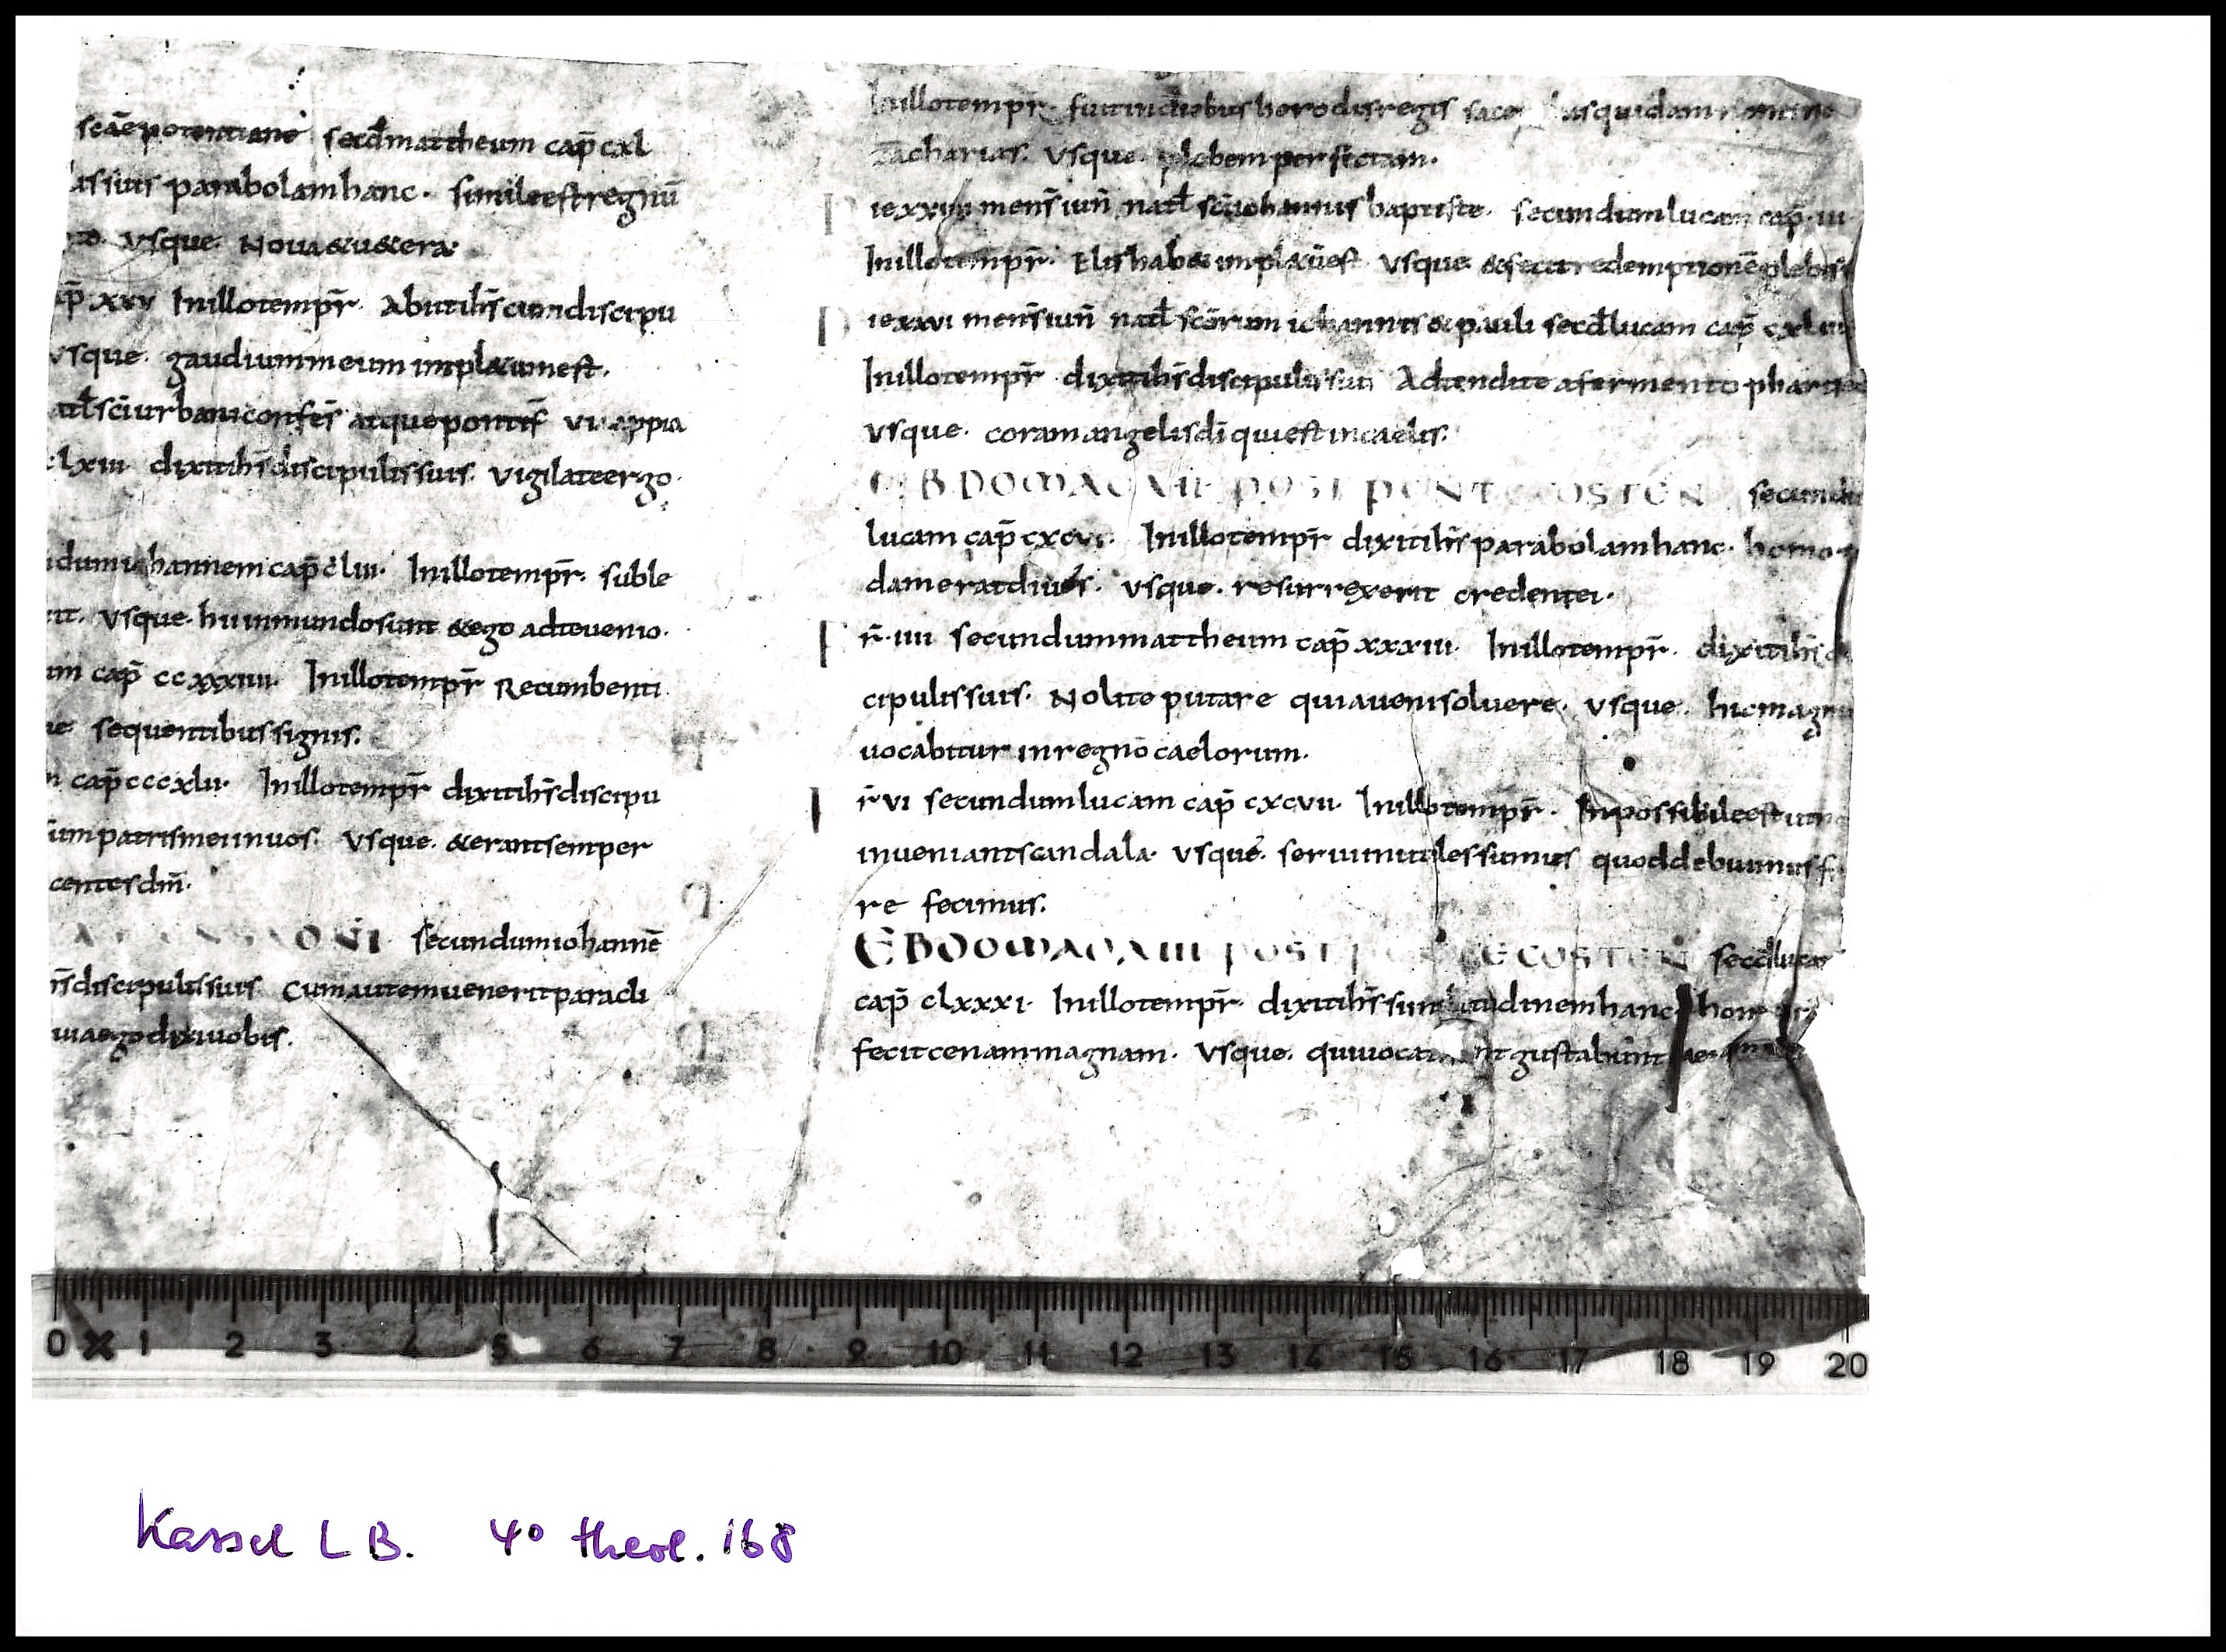 scāe potentiane secd mattheum cap̄ cxl
parabolam hanc. simile est regnū
usque. Noua & u&era.
xxv In illo tempr̄. Abiit ih̄s cum discipu
usque. gaudium meum impl&um est.
sc̄i urbani confes̄ atque pontif̄ appia
clxiii dixit ih̄s discipulis suis. vigilate ergo.
dum iohannem cap̄ cliii. In illo tempr̄. suble
usque. hii in mundo sunt & ego ad te uenio.
cap̄ ccxxxiiii. In illo tempr̄ Recumbenti
sequentibus signis.
cap̄ cccxlii. In illo tempr̄ dixit ih̄s discipu
patris mei in uos. usque. & erant semper
centes dm̄.
secundum iohannē
discipulis suis cum autem uenerit paracli
ego dixi uobis.
In illo tempr̄. fuit in diebus herodis regis quidam nomine
Zacharias. usque. plebem perfectam.
ie xxiiii mens̄ iun̄ natl̄ sc̄i iohannis baptiste. secundum lucam cap̄. iii
In illo tempr̄. Elishab& impl&ū est usque. & fecit redemptionē plebis
D ie xxvi mens̄ iun̄ natl̄ scōrum iohannis & pauli secd lucam cap̄
In illo tempr̄ dixit ih̄s discipulis suis Adtendite a fermento
usque. coram angelis dī qui est in caelis.
EBDOMAD VII POST PENTECOSTEN secundū
lucam cap̄ cxcvi. In illo tempr̄ dixit ih̄s parabolam hanc. homo
dam erat diues. usque. resurrexerit credent ei.
F r̄. iiii secundum mattheum cap̄ xxxiii. In illo tempr̄. dixit ih̄s
cipulis suis. Nolite putare quia ueni soluere. usque. hic magnu
uocabitur in regno caelorum.
r̄ vi secundum lucam cap̄ cxcvii. In illo tempr̄. Inpossibile est ut
inueniant scandala. usque. serui inutiles sumus quod debuimus
re fecimus.
EBDOMAD VIII POST PENTECOSTEN secd luca
cap̄ clxxxi. In illo tempr̄. dixit ih̄s similitudinem hanc
fecit cenam magnam. usque. qui uocati gustabunt
0 1 2 3 4 5 6 7 8 9 10 11 12 13 14 15 16 17 18 19 20
Kassel LB. 4° theol. 168